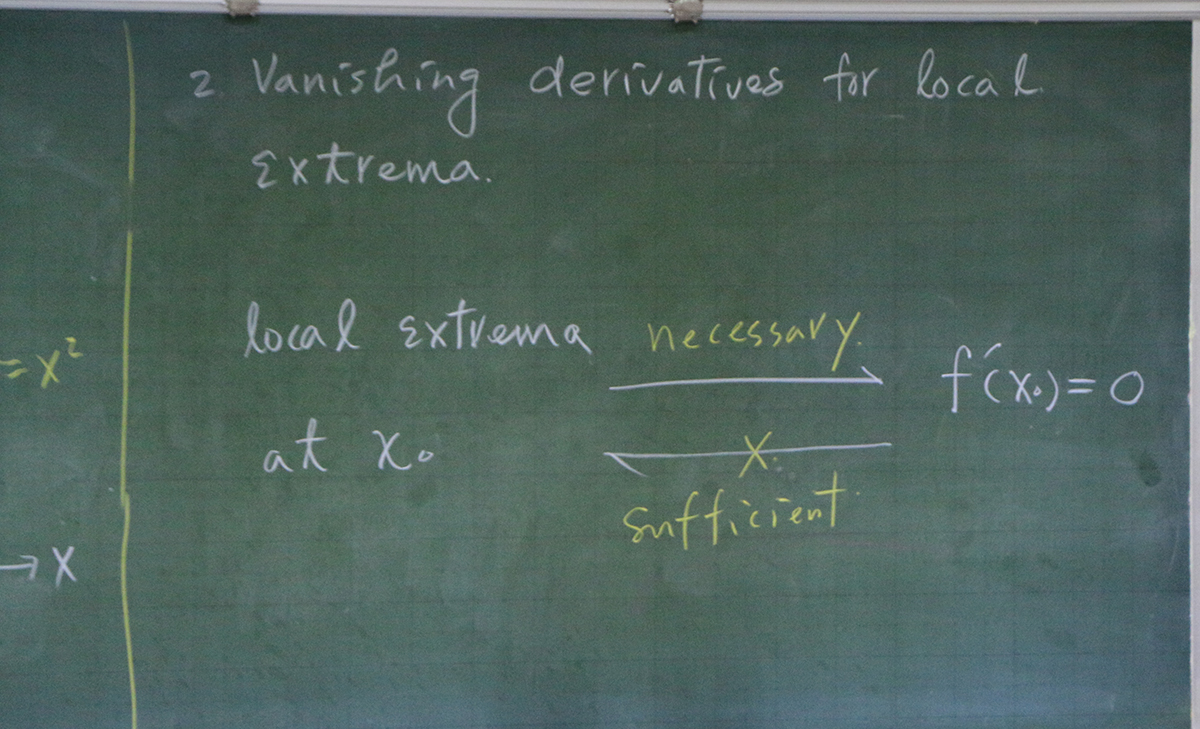 = x²
→ x
2. Vanishing derivatives for local
extrema.
local extrema necessary.
f'(x₀) = 0
at x₀
x.
sufficient.